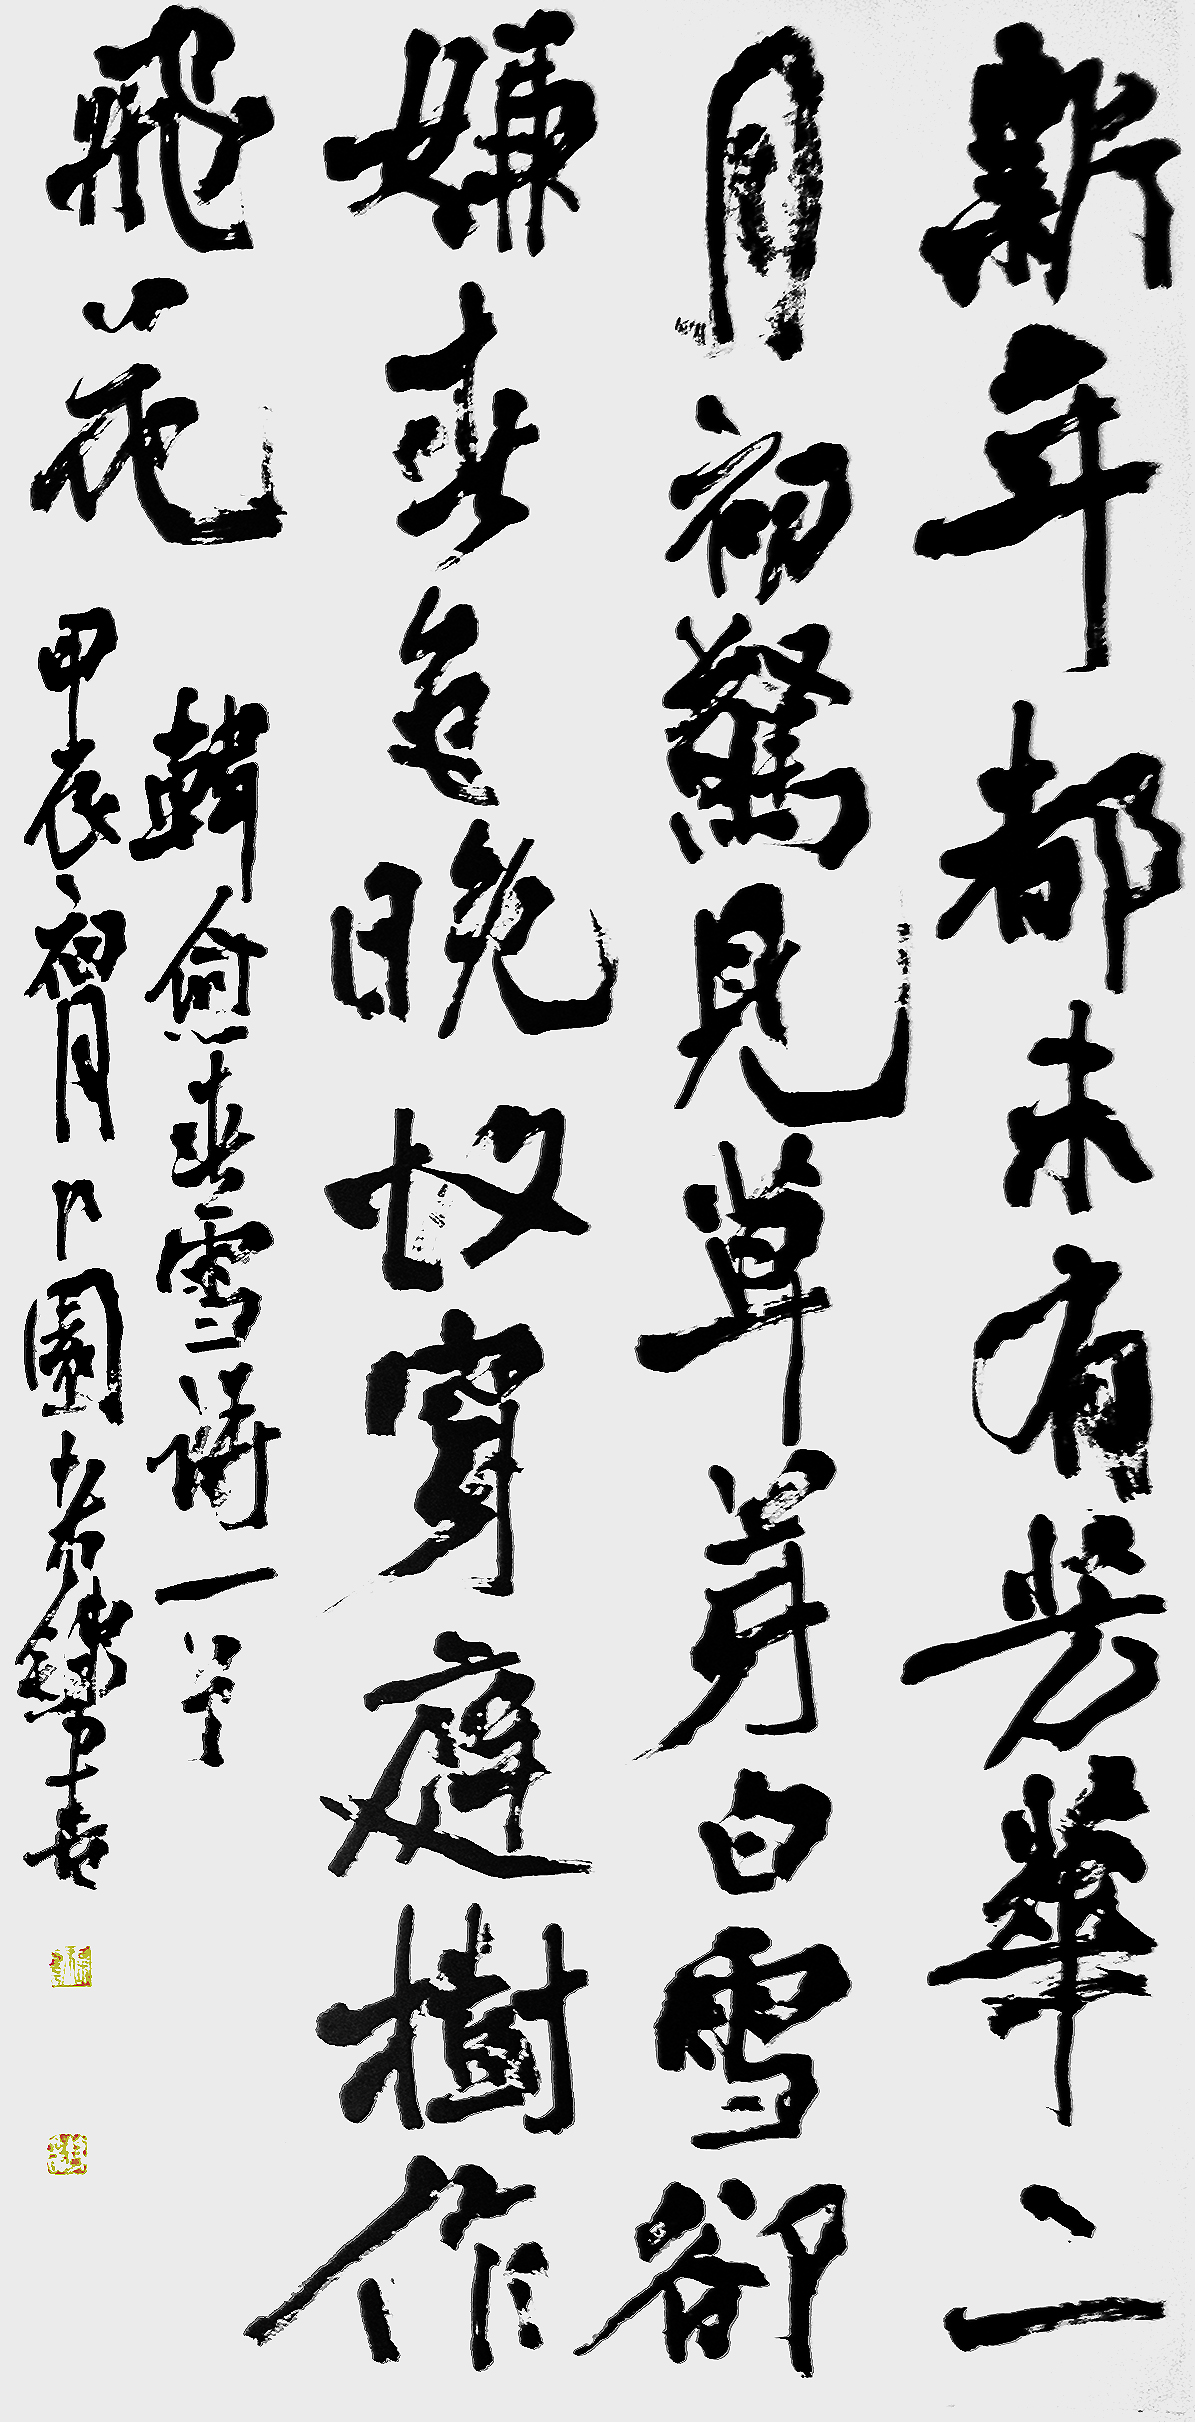 新年都未有芳華二
月初驚見草芽白雪卻
嫌春色晚故穿庭樹作
飛花
韓愈春雪詩一首
甲辰初月